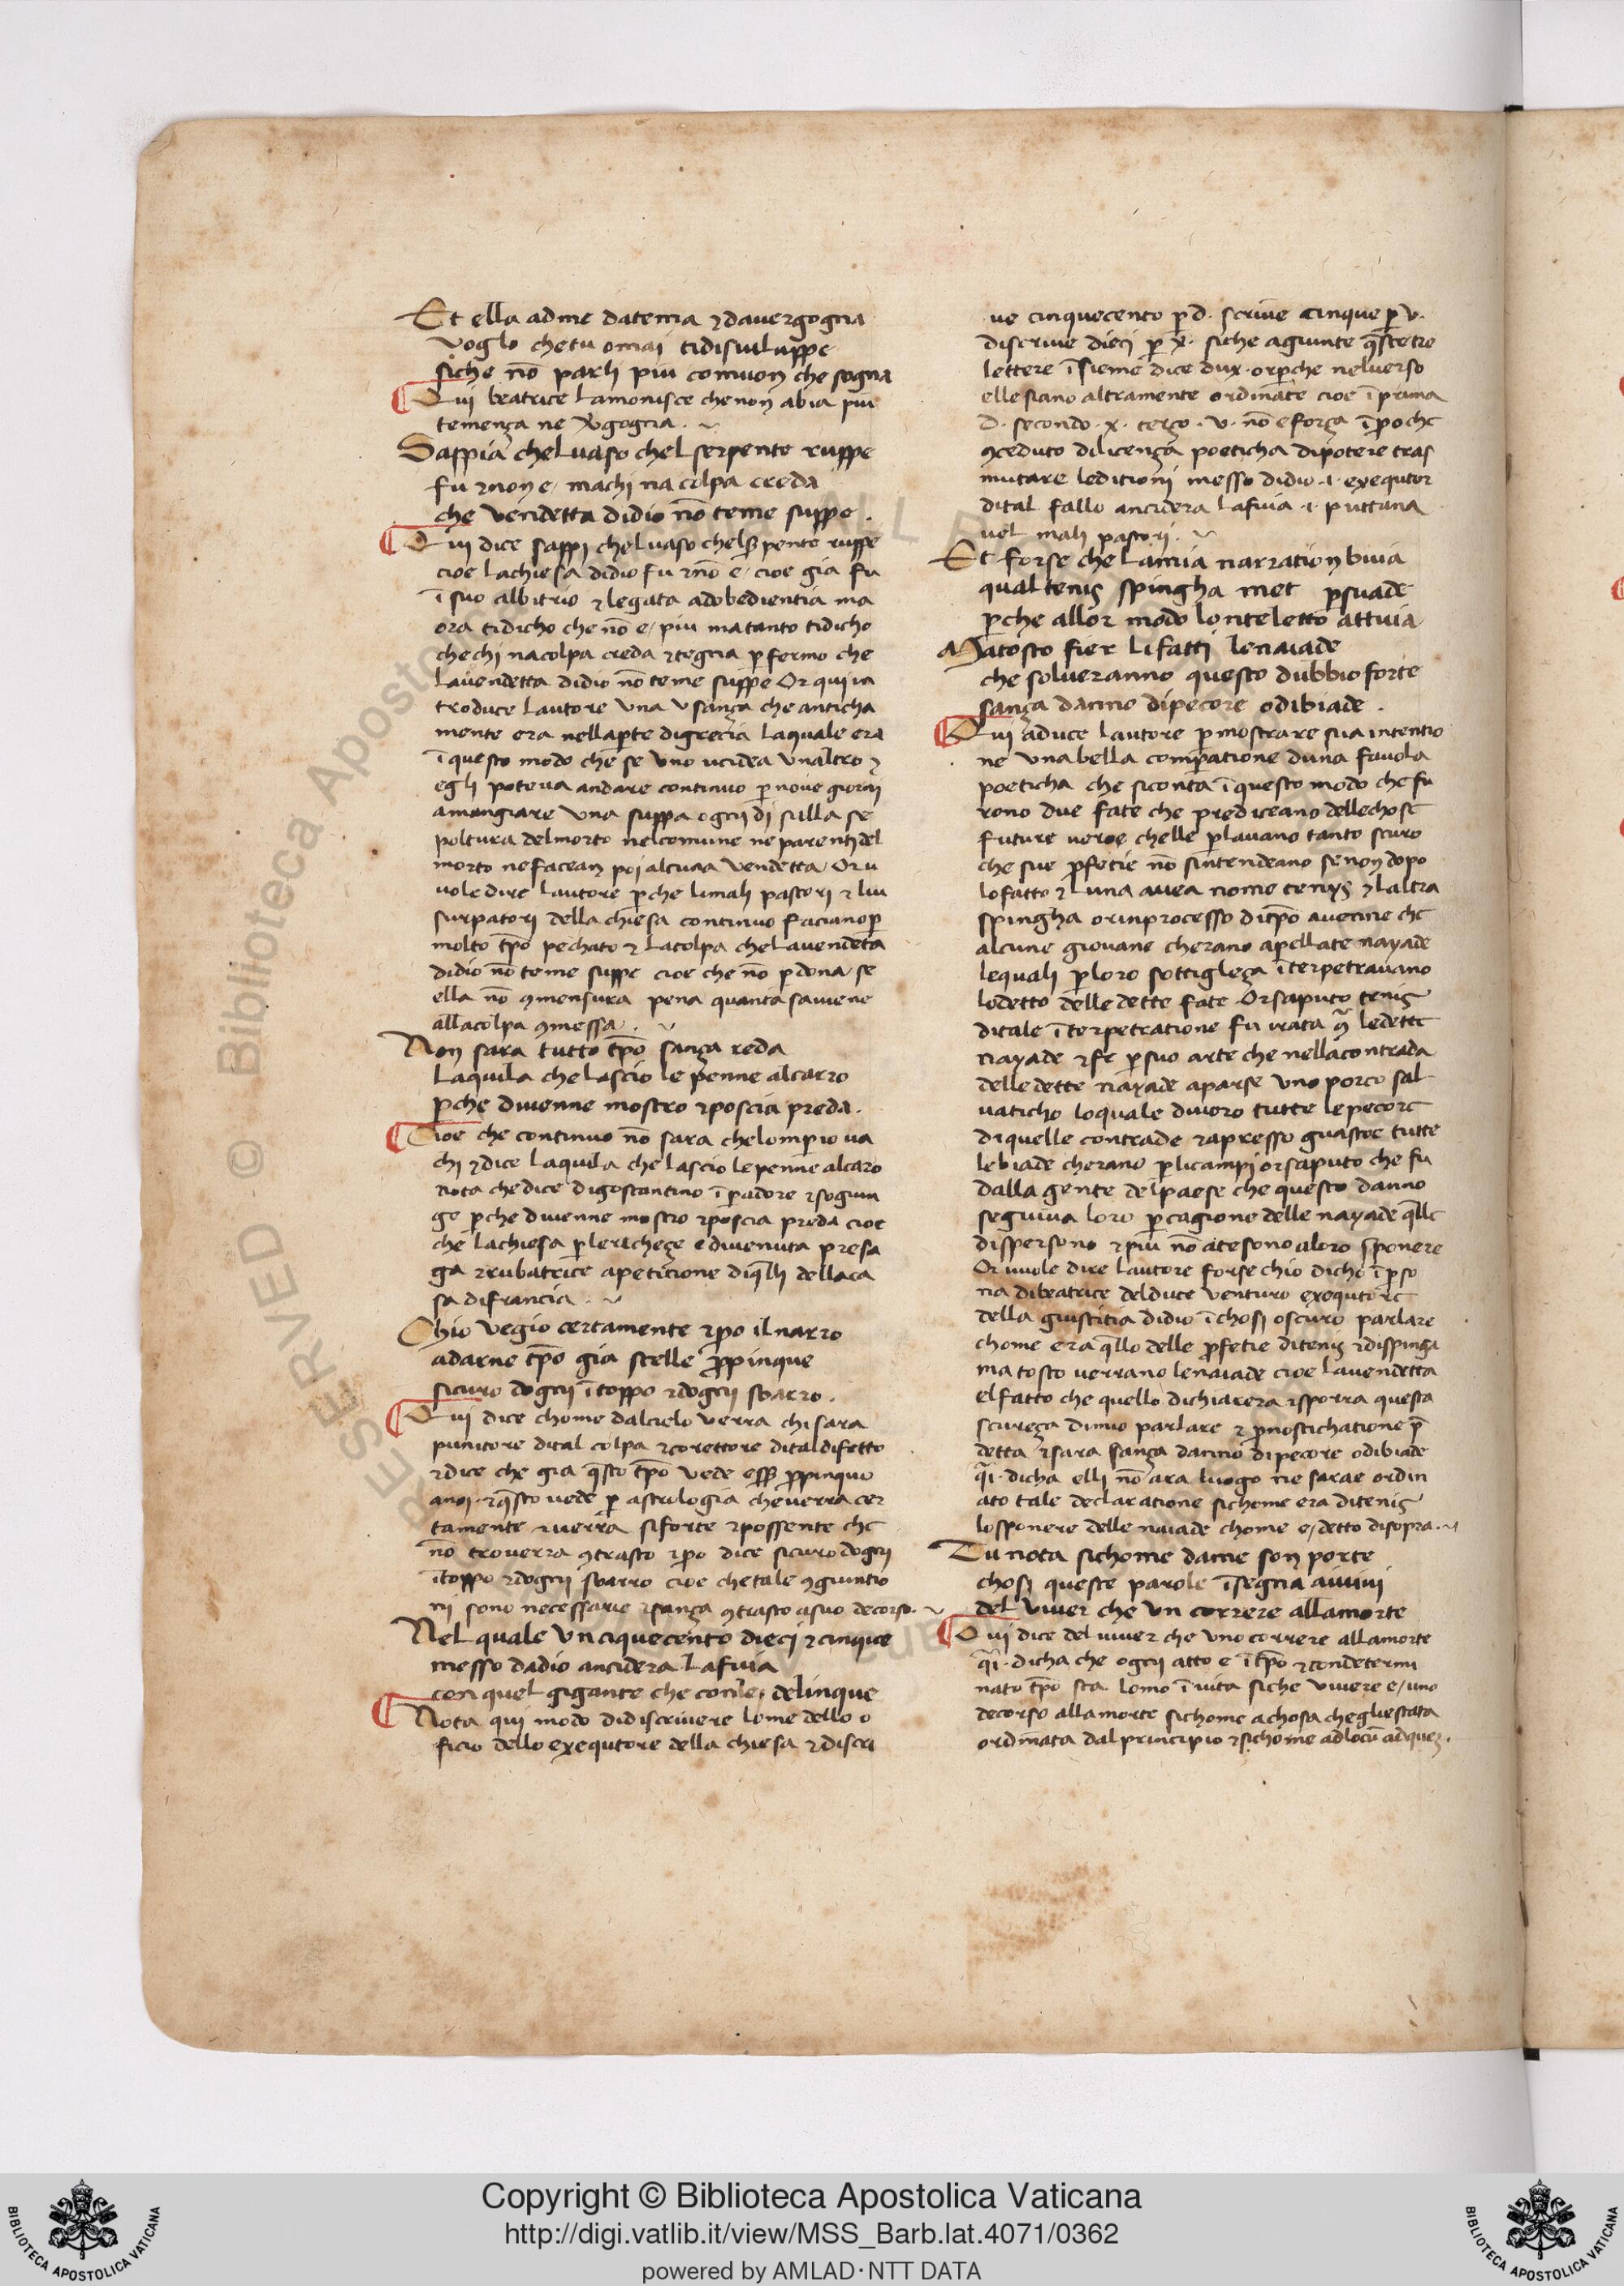 Et ella ad me da tema ⁊ da vergogna
voglo che tu omai ti disviluppe
siche nō parli piu com uon che sogna
Qui beatrice lamonisce che non abia piu
temenza ne v̄gogna.
Sappia chel vaso chel serpente ruppe
fu ⁊ non e, ma chi na colpa creda
che vendetta didio nō teme suppe.
Qui dice sappi chel vaso chel s̄pente ruppe
cioe la chiesa didio fu ⁊ nō e, cioe gia fu
ī suo albitrio ⁊ legata adobedientia ma
ora ti dicho che nō e, piu ma tanto ti dicho
che chi na colpa creda ⁊ tegna p̄ fermo che
la vendetta didio nō teme suppe Or qui in
troduce lautore una usanza che anticha
mente era nella p̄te di grecia la quale era
ī questo modo che se uno ucidea unaltro ⁊
egli poteva andare continuo p̄ nove giorni
a mangiare una suppa ogni di sulla se
poltura del morto nel comune ne parenti del
morto ne facean poi alcuna vendetta Or v
vole dire lautore p̄che li mali pastori ⁊ liu
surpatori della chiesa continuo faciano p̄
molto tp̄o pechato ⁊ la colpa che la vendeta
didio nō teme suppe cioe che nō p̄dona se
ella nō 9mensura pena quanta saviene
alla colpa 9messa.
Non sara tutto tp̄o sanza reda
laquila che lascio le penne al carro
p̄che divenne mostro ⁊ poscia preda.
Cioe che continuo nō sara che lomp̄io va
chi ⁊ dice laquila che lascio le penne al caro
nota che dice di gostantino īp̄adore ⁊ sogiun
ge p̄che divenne mostro ⁊ poscia preda cioe
che la chiesa p̄ le richeze e divenuta presa
ga ⁊ rubatrice a peticione di q̄lli della ca
sa di francia.
Chio vegio certamente ⁊ p̄o il narro
a darne tp̄o gia stelle p̄pinque
sicuro dogni ītoppo ⁊ dogni sbarro.
Qui dice chome dal cielo verra chi sara
punitore di tal colpa ⁊ corettore di tal difetto
⁊ dice che gia q̄sto tp̄o vede ess̄e p̄pinquo
a noi. ⁊ q̄sto vede p̄ astrologia che verra cer
tamente ⁊ verra si forte ⁊ possente che
nō troverra 9trasto ⁊ p̄o dice sicuro dogni
ītoppo ⁊ dogni sbarro cioe che tale 9giuntio
ni sono necessarie ⁊ sanza 9trasto a suo decorso.
Nel quale un ciquecento dieci ⁊ cinque
messo da dio ancidera la fuia
con quel gigante che con lei delinque
Nota qui modo di discrivere lome dello o
ficio dello exequtore della chiesa ⁊ discri
ve cinquecento p̄ d. scrive cinque p̄ v.
discrive dieci p̄ x. siche agiunte q̄ste tre
lettere īsieme dice dux. or p̄che nel verso
elle siano altramente ordinate cioe ī prima
D. secondo. x. terzo. v. nō e forza īp̄o che
9ceduto di licenza poeticha di potere tras
mutare le ditioni messo didio .i. exequtor
di tal fallo ancidera la fuia .i. puttana
vel mali pastori.
Et forse che la mia narration buia
qual tenis spingha me t p̄suade
p̄che a llor modo lonteletto attuia
Ma tosto fier li fatti le naiade
che solveranno questo dubbio forte
sanza danno di pecore o di biade.
Qui aduce lautore p̄ mostrare sua intentio
ne una bella comp̄atione duna favola
poeticha che si conta ī questo modo che fu
rono due fate che prediceano delle chose
future vero e chelle p̄lavano tanto scuro
che sue p̄fetie nō sintendeano se non dopo
lo fatto ⁊ luna avea nome tenys ⁊ laltra
spingha or in processo di tp̄o avenne che
alcune giovane cherano apellate nayade
le quali p̄ loro sottigleza īterpetravano
lo detto delle dette fate Or saputo tenis
di tale īterpetratione fu irata 9̄ le dette
nayade ⁊ fe p̄ suo arte che nella contrada
delle dette nayade aparse uno porco sal
vaticho lo quale divoro tutte le pecore
di quelle contrade ⁊ apresso guastoe tutte
le biade cherano p̄ li campi or saputo che fu
dalla gente del paese che questo danno
seguiva loro p̄ cagione delle nayade q̄lle
dispersono ⁊ piu nō atesono a loro īsponere
Or vuole dire lautore forse chio dicho ī p̄so
na di beatrice del duce venturo exequtore
della giustitia didio ī chosi oscuro parlare
chome era q̄llo delle p̄fetie di tenis ⁊ di spinga
ma tosto verrano le naiade cioe la vendetta
el fatto che quello dichiarera ⁊ sporra questa
scureza di mio parlare ⁊ p̄nostichatione p̄
detta ⁊ sara sanza danno di pecore o di biade
q̄i. dicha elli nō ara luogo ne sarae ordin
ato tale declaratione sichome era di tenis
lo sponere delle naiade chome e, detto di sopra.
Tu nota sichome da me son porte
chosi queste parole īsegna a vivi
del viver che un correre alla morte
Qui dice del viver che uno correre alla morte
q̄i. dicha che ogni atto e ī tp̄o ⁊ con determi
nato tp̄o sta lomo ī vita siche vivere e, uno
decorso alla morte sichome a chosa che gliestata
ordinata dal principio ⁊ sichome ad locū ad quez.
Copyright © Biblioteca Apostolica Vaticana
http://digi.vatlib.it/view/MSS_Barb.lat.4071/0362
powered by AMLAD·NTT DATA
BIBLIOTECA APOSTOLICA VATICANA
BIBLIOTECA APOSTOLICA VATICANA